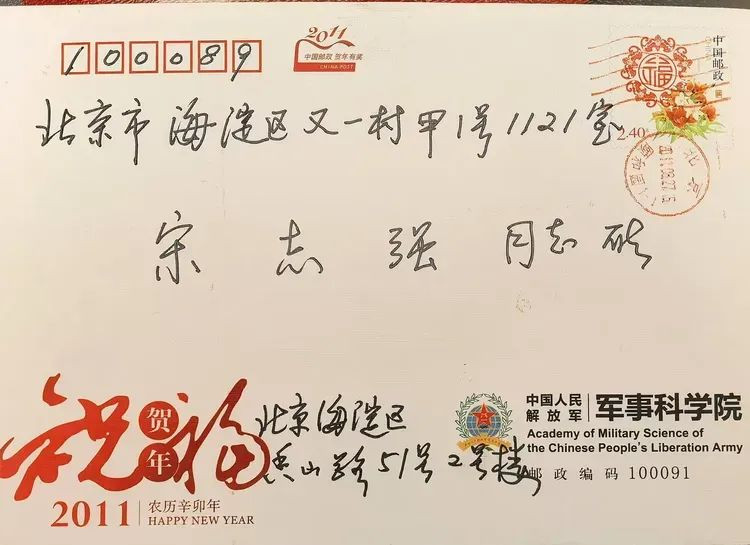 100089
2011
中国邮政 贺年有奖
CHINA POST
中国邮政
福
2.40
北京
北京市海淀区又一村甲1号1121室
宋志强 同志收
祝福
贺年
2011
农历辛卯年
HAPPY NEW YEAR
北京海淀区
香山路51号2号楼
中国人民解放军 军事科学院
Academy of Military Science of
the Chinese People's Liberation Army
邮政编码 100091